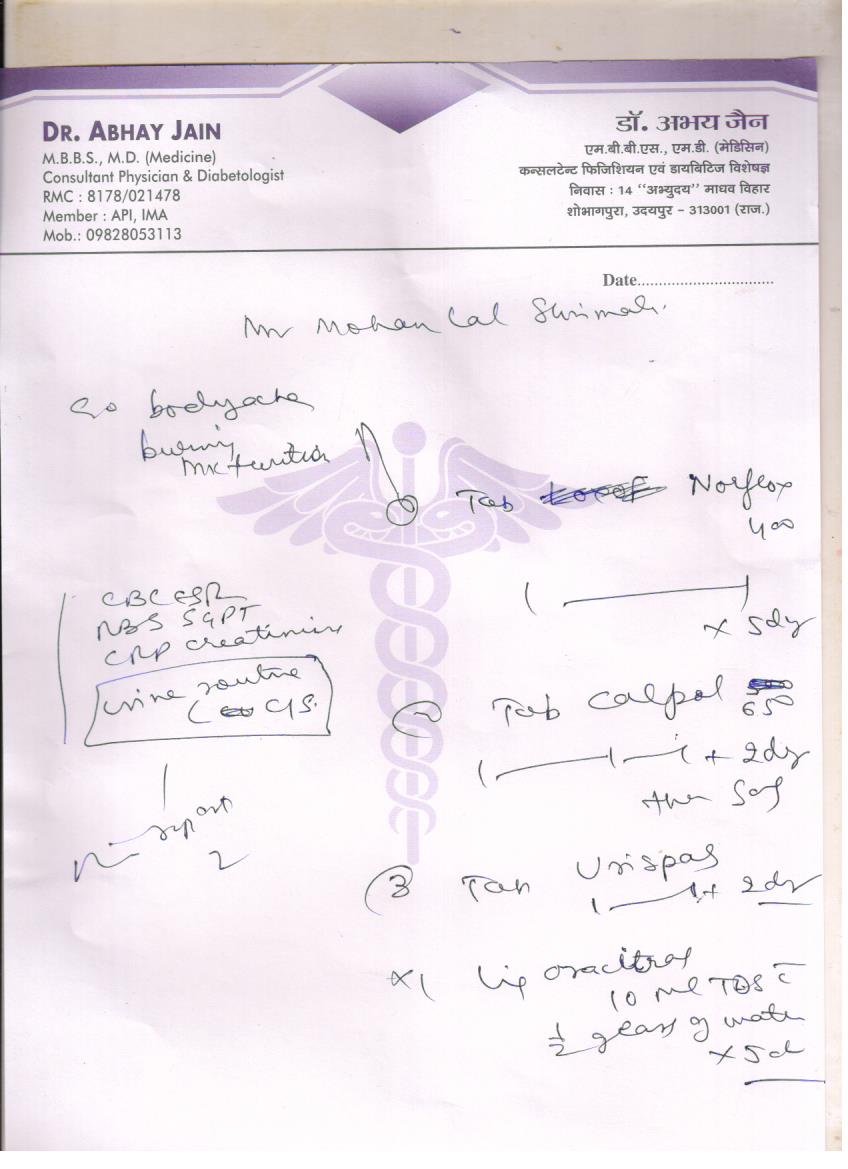 DR. ABHAY JAIN
M.B.B.S., M.D. (Medicine)
Consultant Physician & Diabetologist
RMC : 8178/021478
Member : API, IMA
Mob.: 09828053113
डॉ. अभय जैन
एम.बी.बी.एस., एम.डी. (मेडिसिन)
कन्सलटेन्ट फिजिशियन एवं डायबिटिज विशेषज्ञ
निवास : 14 "अभ्युदय" माधव विहार
शोभागपुरा, उदयपुर - 313001 (राज.)
Date................................
Mr Mohan Lal Shrimali.
bodyache
burning
micturition
Tab Norflox
400
x 5dy
CBC ESR
RBS SGPT
CRP creatinine
urine routine
C/S.
report
2 Tab Calpol 650
+ 2dy
then SOS
3 Tab Urispas
+ 2dy
oracitral
10 ml TDS c̄
1/2 glass of water
x 5d